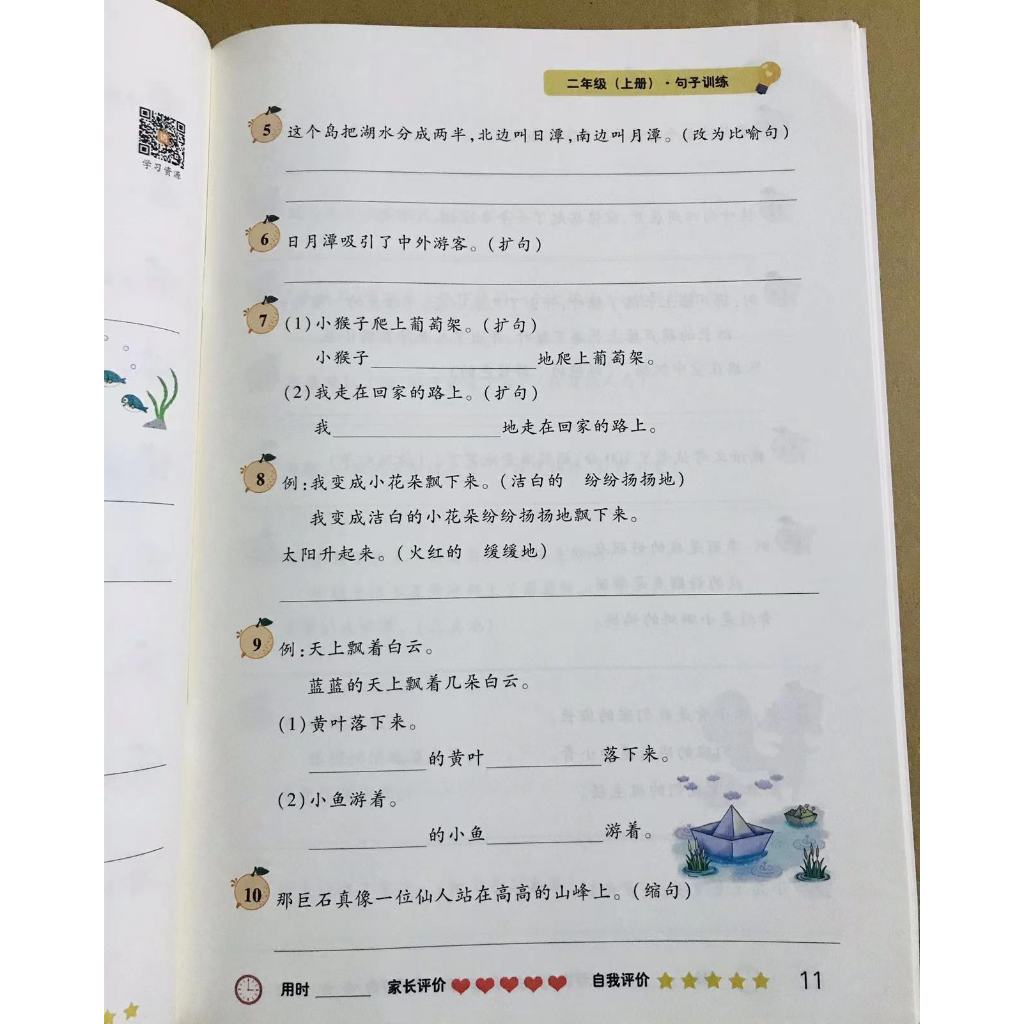 学习资源
二年级（上册）·句子训练
5 这个岛把湖水分成两半,北边叫日潭,南边叫月潭。（改为比喻句）
6 日月潭吸引了中外游客。（扩句）
7 （1）小猴子爬上葡萄架。（扩句）
小猴子____________地爬上葡萄架。
（2）我走在回家的路上。（扩句）
我____________地走在回家的路上。
8 例:我变成小花朵飘下来。（洁白的 纷纷扬扬地）
我变成洁白的小花朵纷纷扬扬地飘下来。
太阳升起来。（火红的 缓缓地）
9 例:天上飘着白云。
蓝蓝的天上飘着几朵白云。
（1）黄叶落下来。
________的黄叶________落下来。
（2）小鱼游着。
________的小鱼________游着。
10 那巨石真像一位仙人站在高高的山峰上。（缩句）
用时____ 家长评价 自我评价 11